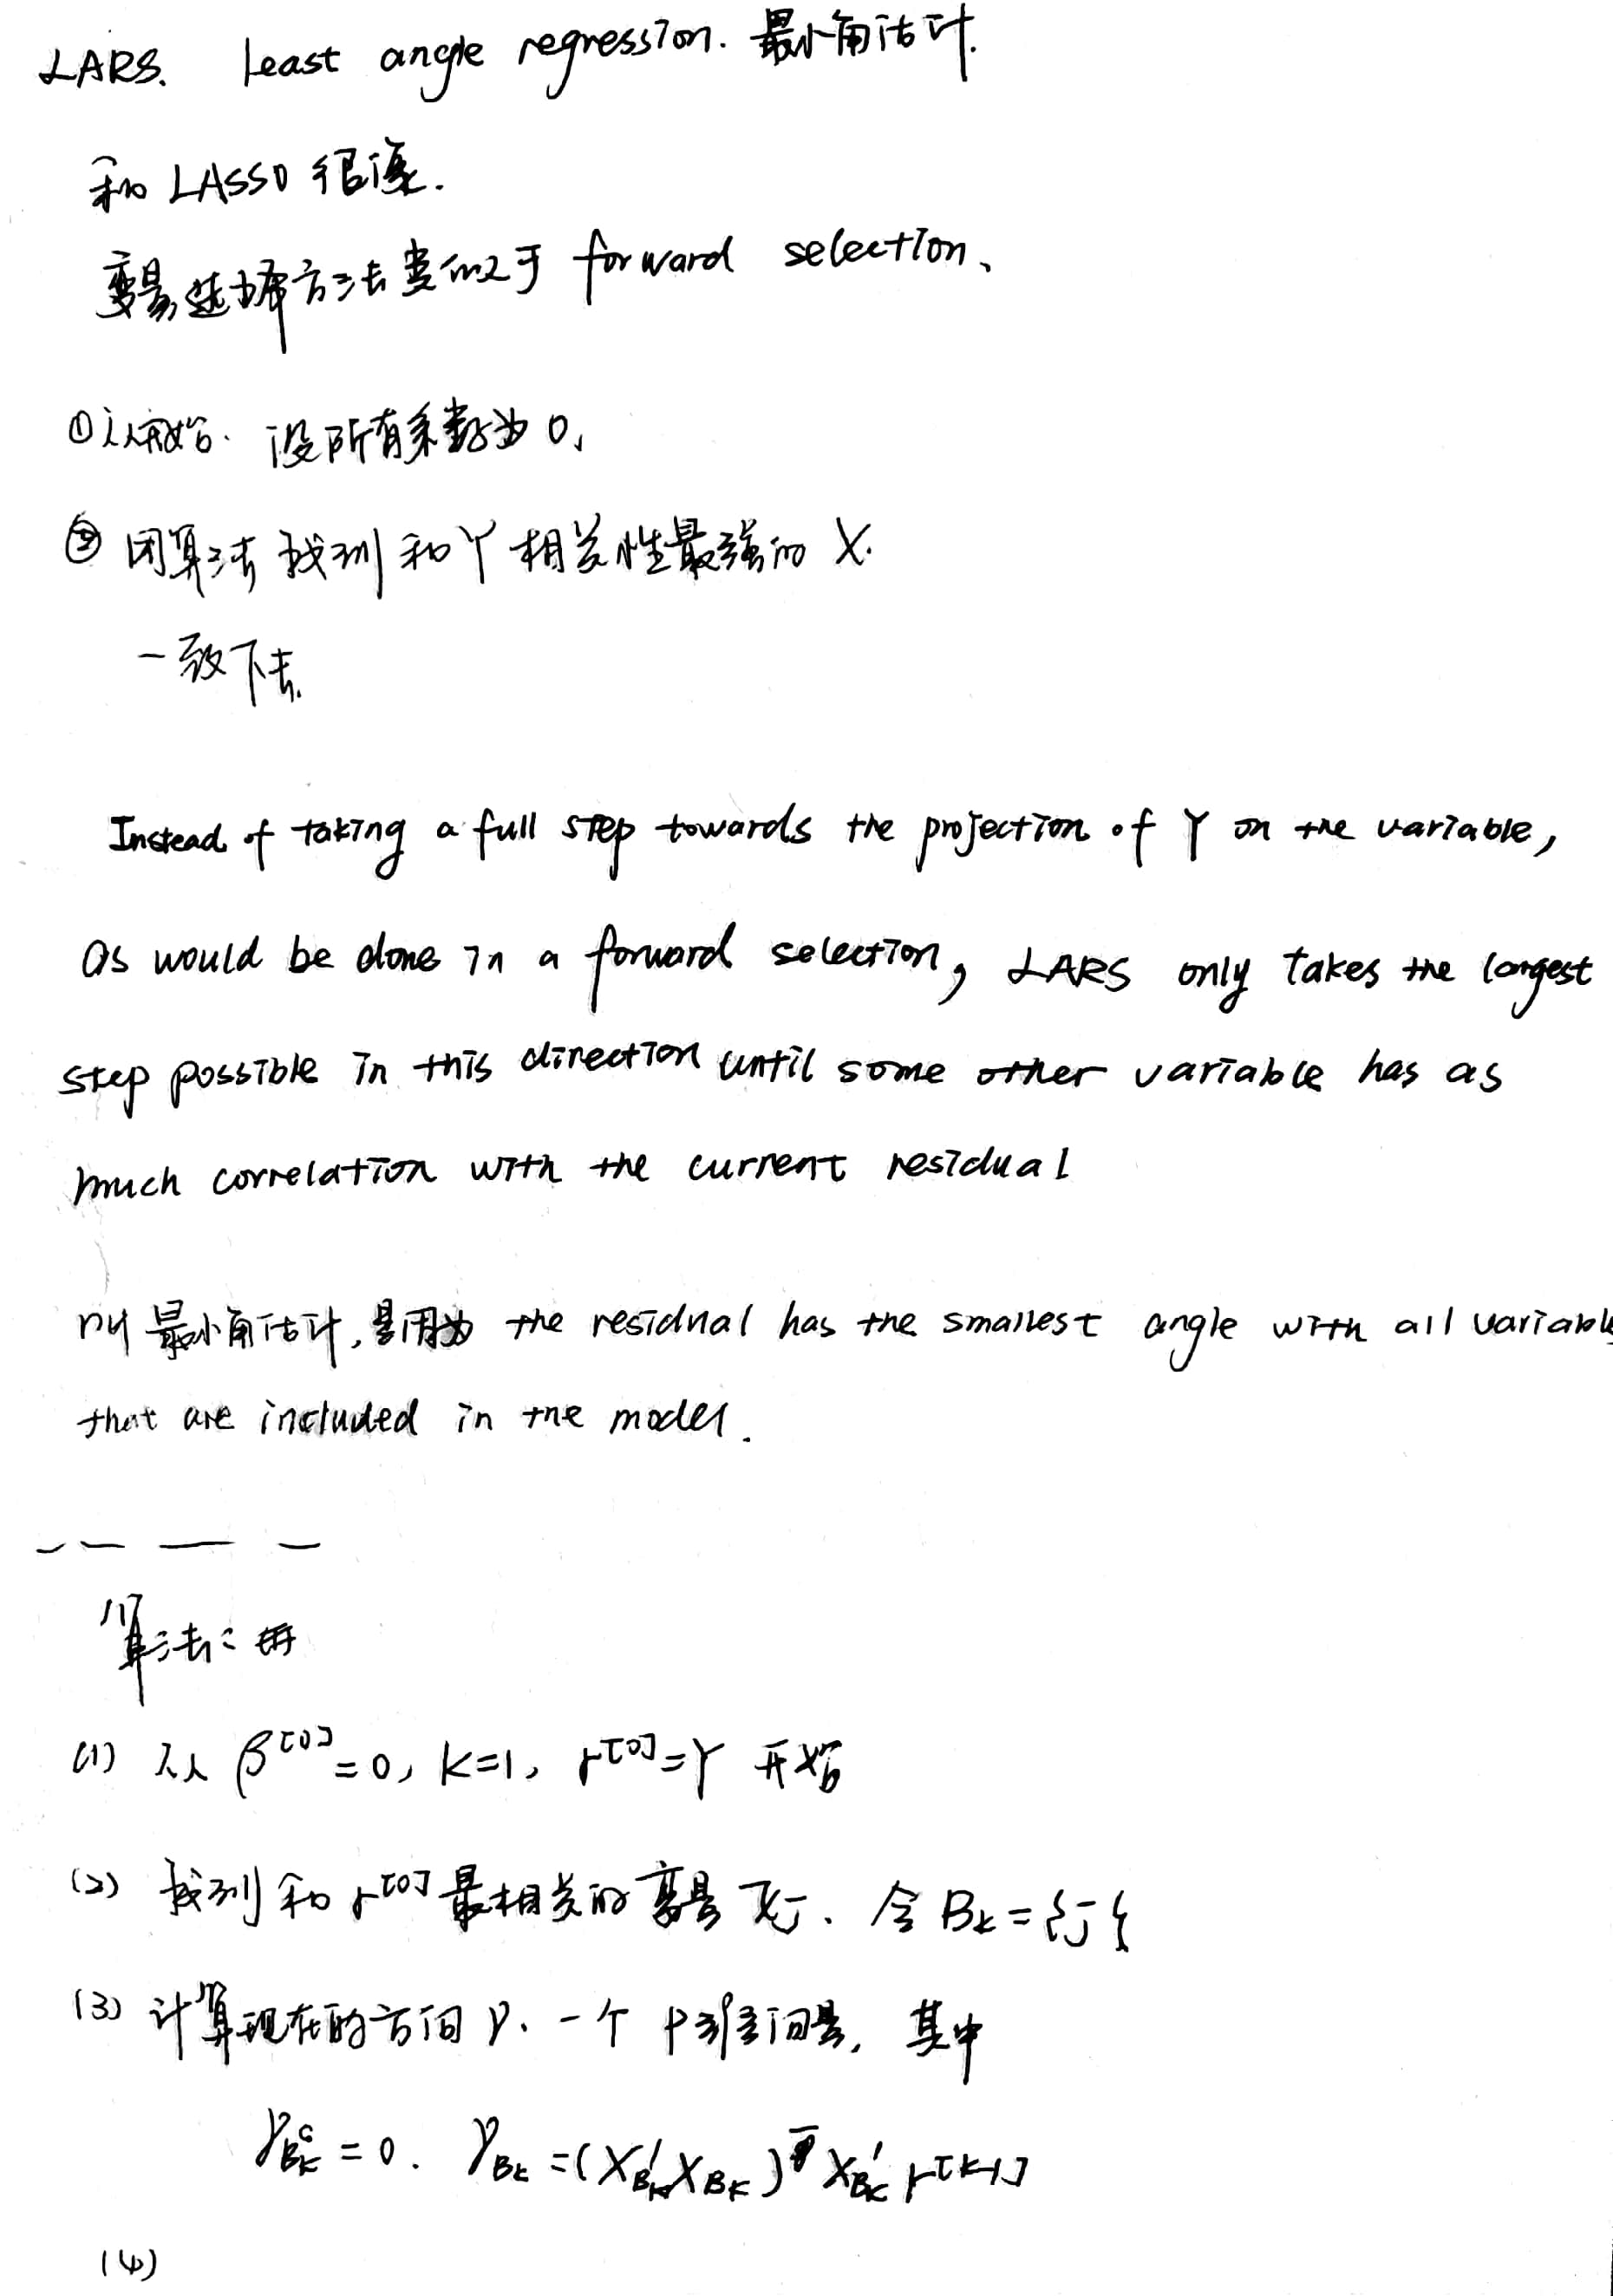 LARS. Least angle regression. 最小角估计.
和 LASSO 很像.
变量选择方法类似于 forward selection、
① 从开始. 设所有系数为 0、
② 用算法找到和 Y 相关性最强的 X.
一致下去.
Instead of taking a full step towards the projection of Y on the variable,
as would be done in a forward selection, LARS only takes the largest
step possible in this direction until some other variable has as
much correlation with the current residual
叫最小角估计, 是因为 the residual has the smallest angle with all variable
that are included in the model.
算法:
(1) 从 β^[0] = 0, k=1, r^[0] = Y 开始
(2) 找到和 r^[0] 最相关的变量 x_j. 令 B_k = {j}
(3) 计算现在的方向 γ. 一个 p 维向量, 其中
γ_{B_k^c} = 0. γ_{B_k} = (X'_{B_k} X_{B_k})^- X'_{B_k} r^[k-1]
(4)